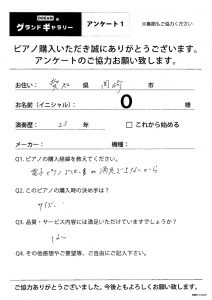 OCEAN ×
グランドギャラリー
アンケート1
※裏面もご協力ください
ピアノ購入いただき誠にありがとうございます。
アンケートのご協力お願い致します。
お住い： 県 岡崎 市
お名前（イニシャル）： O 様
演奏歴： 23 年 □ これから始める
メーカー： 機種：
Q1. ピアノの購入経緯を教えてください。
電子ピアノでは満足できないから
Q2. このピアノの購入時の決め手は？
サイズ
Q3. 品質・サービス内容には満足いただけていますでしょうか？
はい
Q4. その他感想やご要望等、ご自由にご記入下さい。
ご協力ありがとうございました。今後ともよろしくお願い致します。